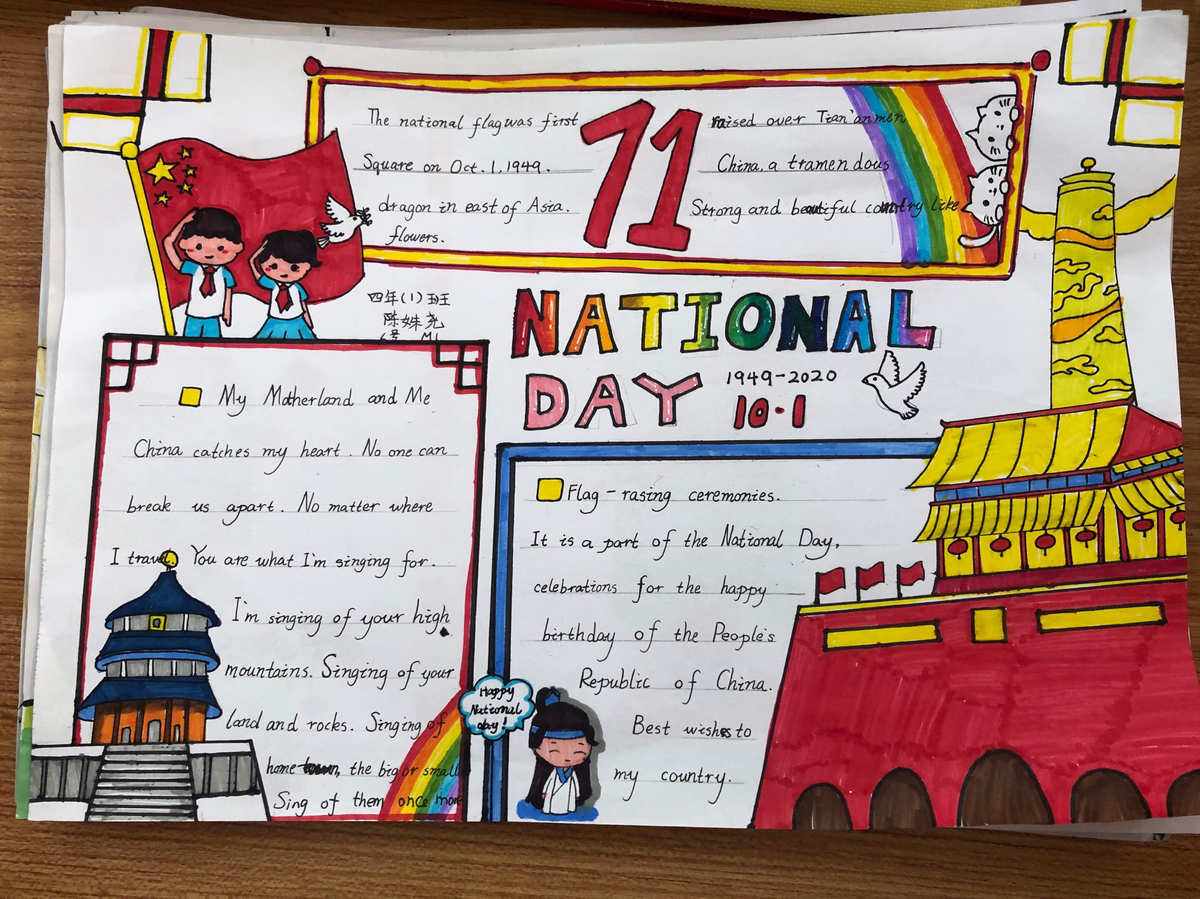 The national flag was first
raised over Tian'anmen
Square on Oct.1.1949.
China, a tramendous
dragon in east of Asia.
Strong and beautiful country like
flowers.
71
四年(1)班
陈姝尧
6号
NATIONAL
DAY
1949-2020
10·1
My Motherland and Me
China catches my heart. No one can
break us apart. No matter where
I travel You are what I'm singing for.
I'm singing of your high
mountains. Singing of your
land and rocks. Singing of
home town, the big or smaller
Sing of them once more
Happy
National
day!
Flag-rasing ceremonies.
It is a part of the National Day,
celebrations for the happy
birthday of the People's
Republic of China.
Best wishes to
my country.